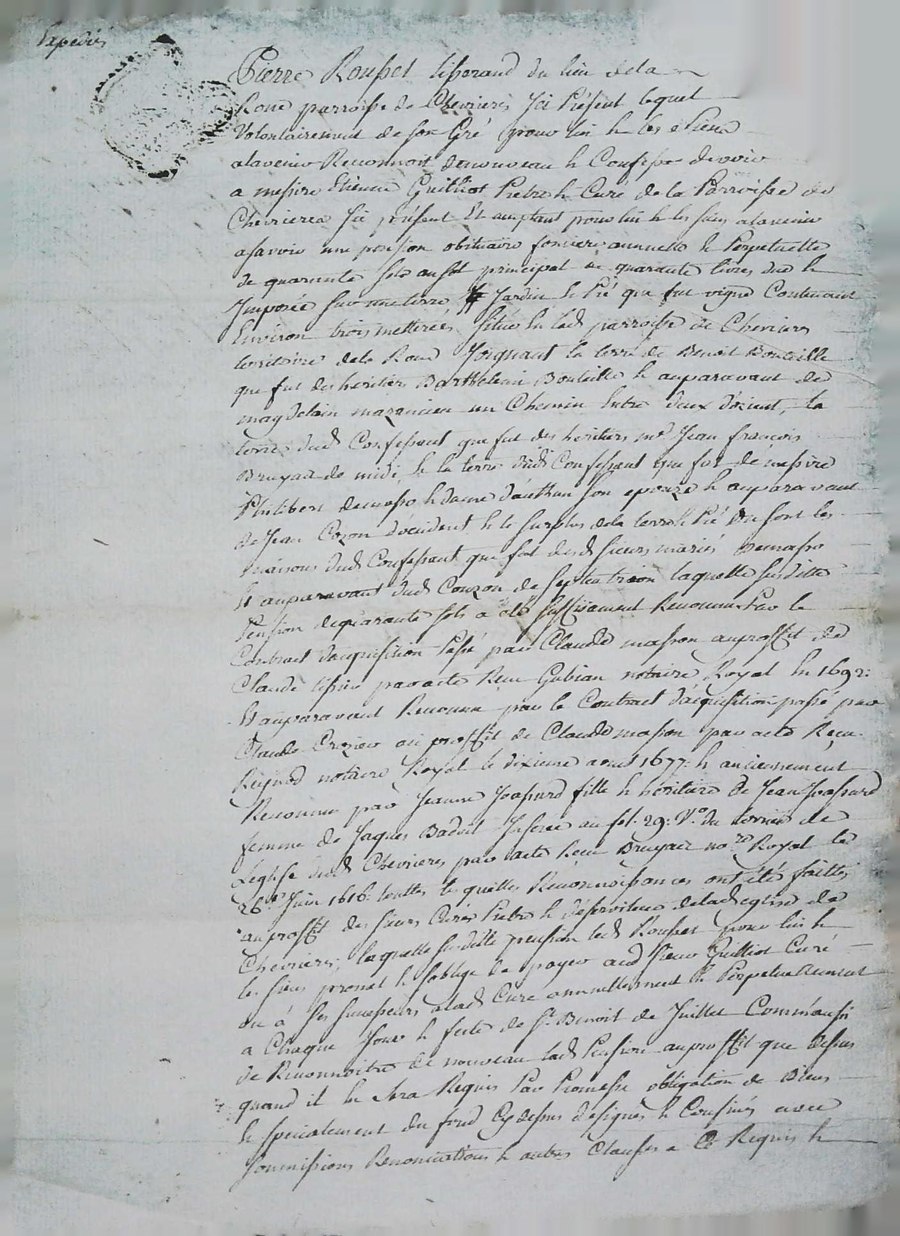 Expediés
Pierre Rousset tisserand du lieu de la
Roue parroisse de Chevrieres Icy Présent lequel
Volontairement de son Gré pour lui & les siens
alavenir Reconnoit denouveau & Confesse devoir
a messire Etienne Guilliot Prebtre & Curé de la Parroisse de
Chevrieres Icy présent Et acceptant pour lui & les siens alavenir
asavoir une pension obituaire fonciere annuelle & Perpetuelle
de quarante sols au sol principal de quarante livres due &
Imposée sur une terre Jardin & Pré que fut vigne Contenant
Environ trois metterées, Située en lad parroisse de Chevrieres
territoire de la Roue Joignant la terre de Benoit Bouteille
que fut des heritiers Barthelemi Bouteille & auparavant de
magdelain un Chemin Entre deux d'orient, la
terre dud Confessant que fut des heritiers me Jean francois
Bruyas de midi, & la terre dudit Confessant que fut de messire
Philibert demasso & dame son epouze & auparavant
de Jean Cozon d'occident & le surplus de la terre & Pré où sont les
maisons dud Confessant que fut desd sieurs mariés Demasso
Et auparavant dud Couzon de septentrion laquelle susditte
Pension de quarante sols a été suffisament Reconnue Par le
Contract d'acquisition Passé par Claude masson auproffit de
Claude par acte Receu Gubian notaire Royal En 1692:
Et auparavant Reconnue par le Contract d'acquisition passé par
Claude au proffit de Claude masson par acte Receu
notaire Royal le dixieme aoust 1677. & anciennement
Reconnue par Jeanne Joassard fille & héritiere de Jean Joassard
femme de Jaques Badoit Inserée au fol. 29: Vo. du terrier de
Leglise dud Chevrieres par acte Receu Bruyas nore Royal le
26e. Juin 1616. touttes lesquelles Reconnoissances ont été faittes
auproffit des sieurs Curés Prebtres & desserviteurs de lad eglise de
Chevrieres; laquelle susditte pension led Rousset pour lui &
les siens promet & s'oblige de payer aud sieur Guilliot Curé
ou à ses successeurs alad Cure annuellement & Perpetuellement
a Chaque Jour & feste de St. Benoit de Juillet Comm'aussi
de Reconnoitre de nouveau lad Pension auproffit que dessus
quand il En sera Requis Par Promesse obligation de Biens
& specialement du fond Cy dessus designé & Confiné avec
Soumissions Renonciations & autres Clauses a Ce Requis &